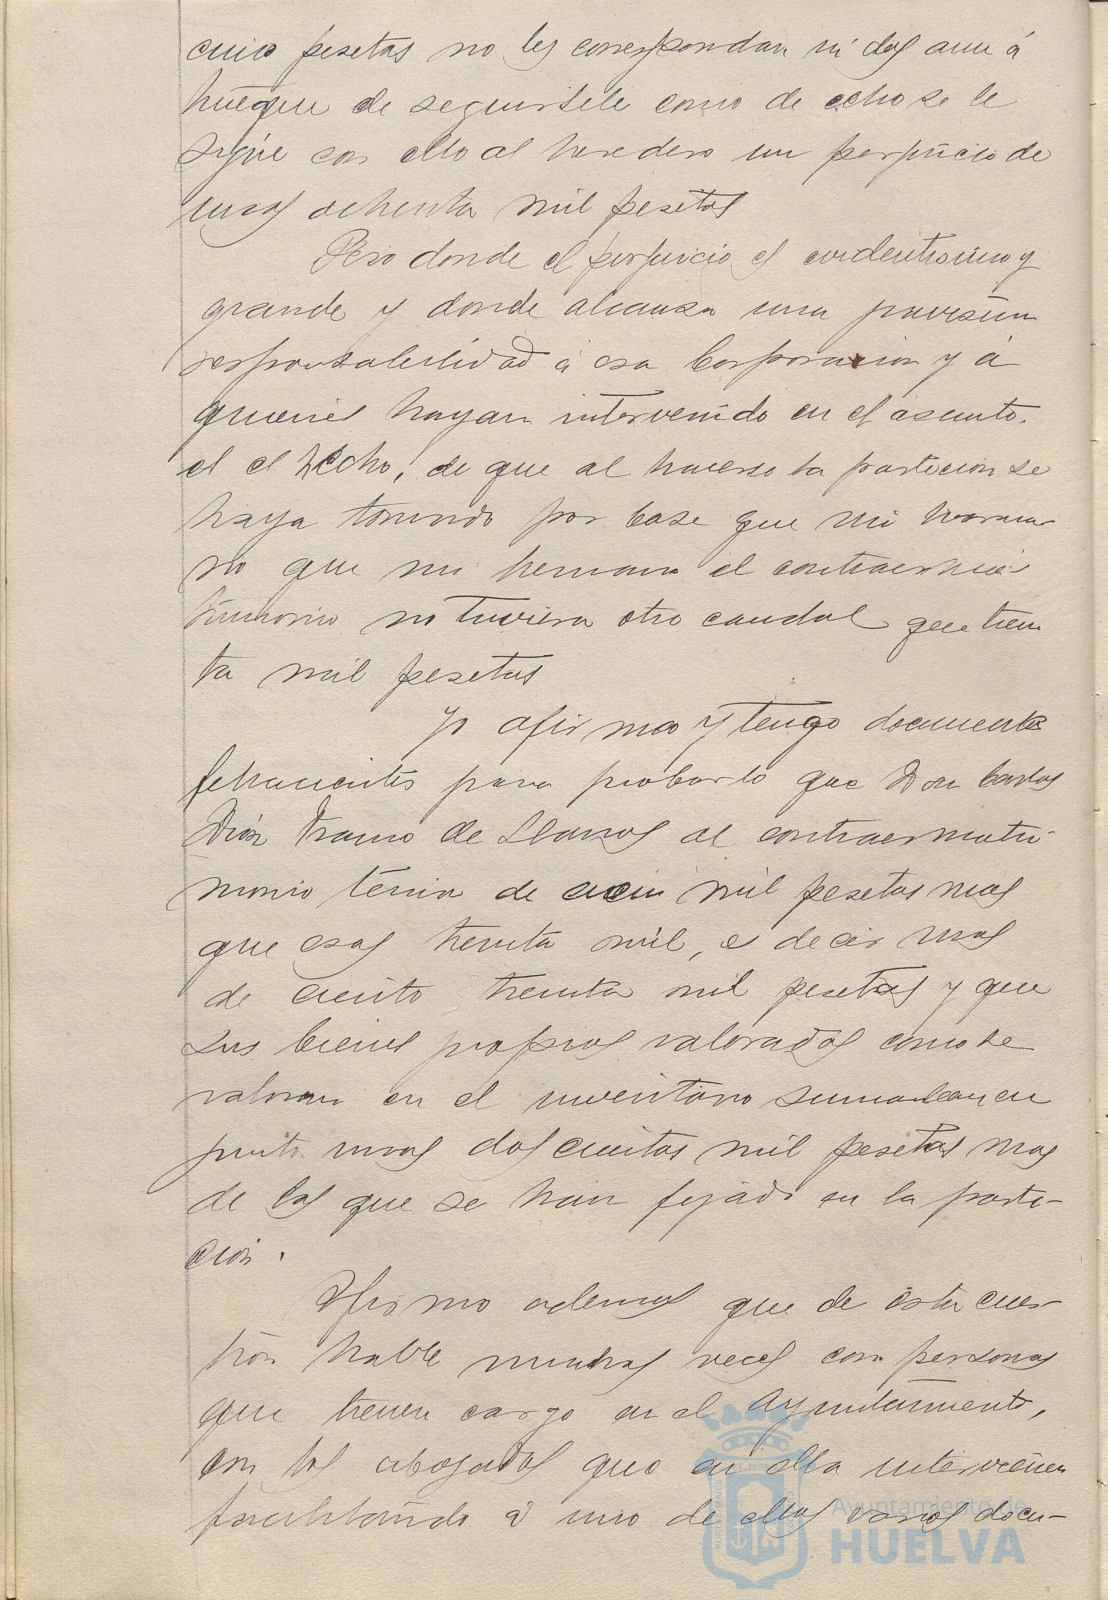 cinco pesetas no les correspondan ni dos aun á
que de seguirsele como de echo se le
sigue con ello al heredero un perjuicio de
unas ochenta mil pesetas
Pero donde el perjuicio es evidentisimo y
grande y donde alcanza una
responsabilidad á esa Corporacion y á
quienes hayan intervenido en el asunto.
es el hecho, de que al hacerse la particion se
haya tomado por base que mi herma
no que mi hermano al contraer ma
trimonio no tuviera otro caudal que trein
ta mil pesetas
Yo afirmo y tengo documentos
fehacientes para probarlo que Don Carlos
Diaz Franco de Llanos al contraer matri-
monio tenia de cien mil pesetas mas
que esas treinta mil, es decir mas
de ciento treinta mil pesetas y que
sus bienes propios valorados como se
valoran en el inventario sumaban en
junto unas doscientas mil pesetas mas
de las que se han fijado en la parti-
cion.
Afirmo ademas que de esta cues-
tion hable muchas veces con personas
que tienen cargo en el Ayuntamiento,
con los abogados que en ella intervienen
facilitando á uno de ellos varios docu-
Ayuntamiento de
HUELVA